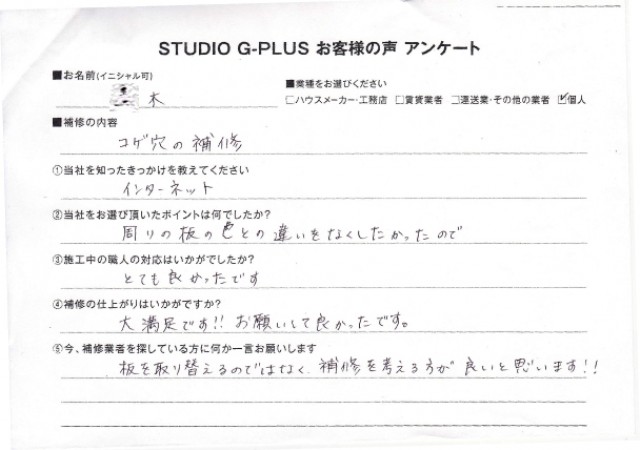 STUDIO G-PLUS お客様の声 アンケート
■お名前(イニシャル可)
木
■業種をお選びください
□ハウスメーカー・工務店 □賃貸業者 □運送業・その他の業者 ☑個人
■補修の内容
コゲ穴の補修
①当社を知ったきっかけを教えてください
インターネット
②当社をお選び頂いたポイントは何でしたか?
周りの板の色との違いをなくしたかったので
③施工中の職人の対応はいかがでしたか?
とても良かったです
④補修の仕上がりはいかがですか?
大満足です!! お願いして良かったです。
⑤今、補修業者を探している方に何か一言お願いします
板を取り替えるのではなく、補修を考える方が良いと思います!!